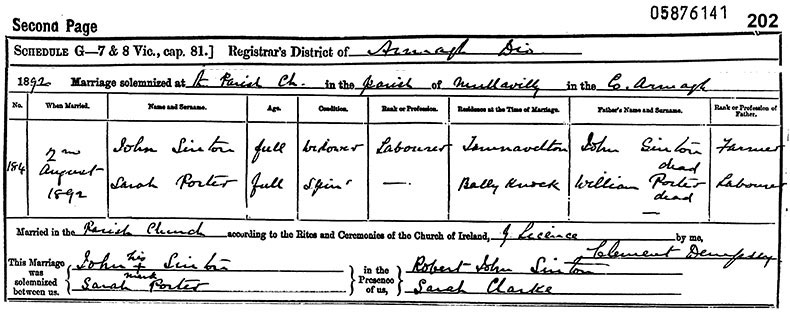 05876141
Second Page 202
SCHEDULE G—7 & 8 Vic., cap. 81.] Registrar's District of Armagh Dis
1892 Marriage solemnized at Parish Ch. in the parish of Mullavilly in the Co. Armagh
No. When Married. Name and Surname. Age. Condition. Rank or Profession. Residence at the Time of Marriage. Father's Name and Surname. Rank or Profession of Father.
184 2nd August 1892 John Sinton full Widower Labourer Tamnavelton John Sinton dead Farmer
Sarah Porter full Spinr — Bally Knock William Porter dead — Labourer
Married in the Parish Church according to the Rites and Ceremonies of the Church of Ireland, by Licence by me,
Clement Dempsey
This Marriage was solemnized between us, John his + mark Sinton in the Presence of us, Robert John Sinton
Sarah Porter Sarah Clarke